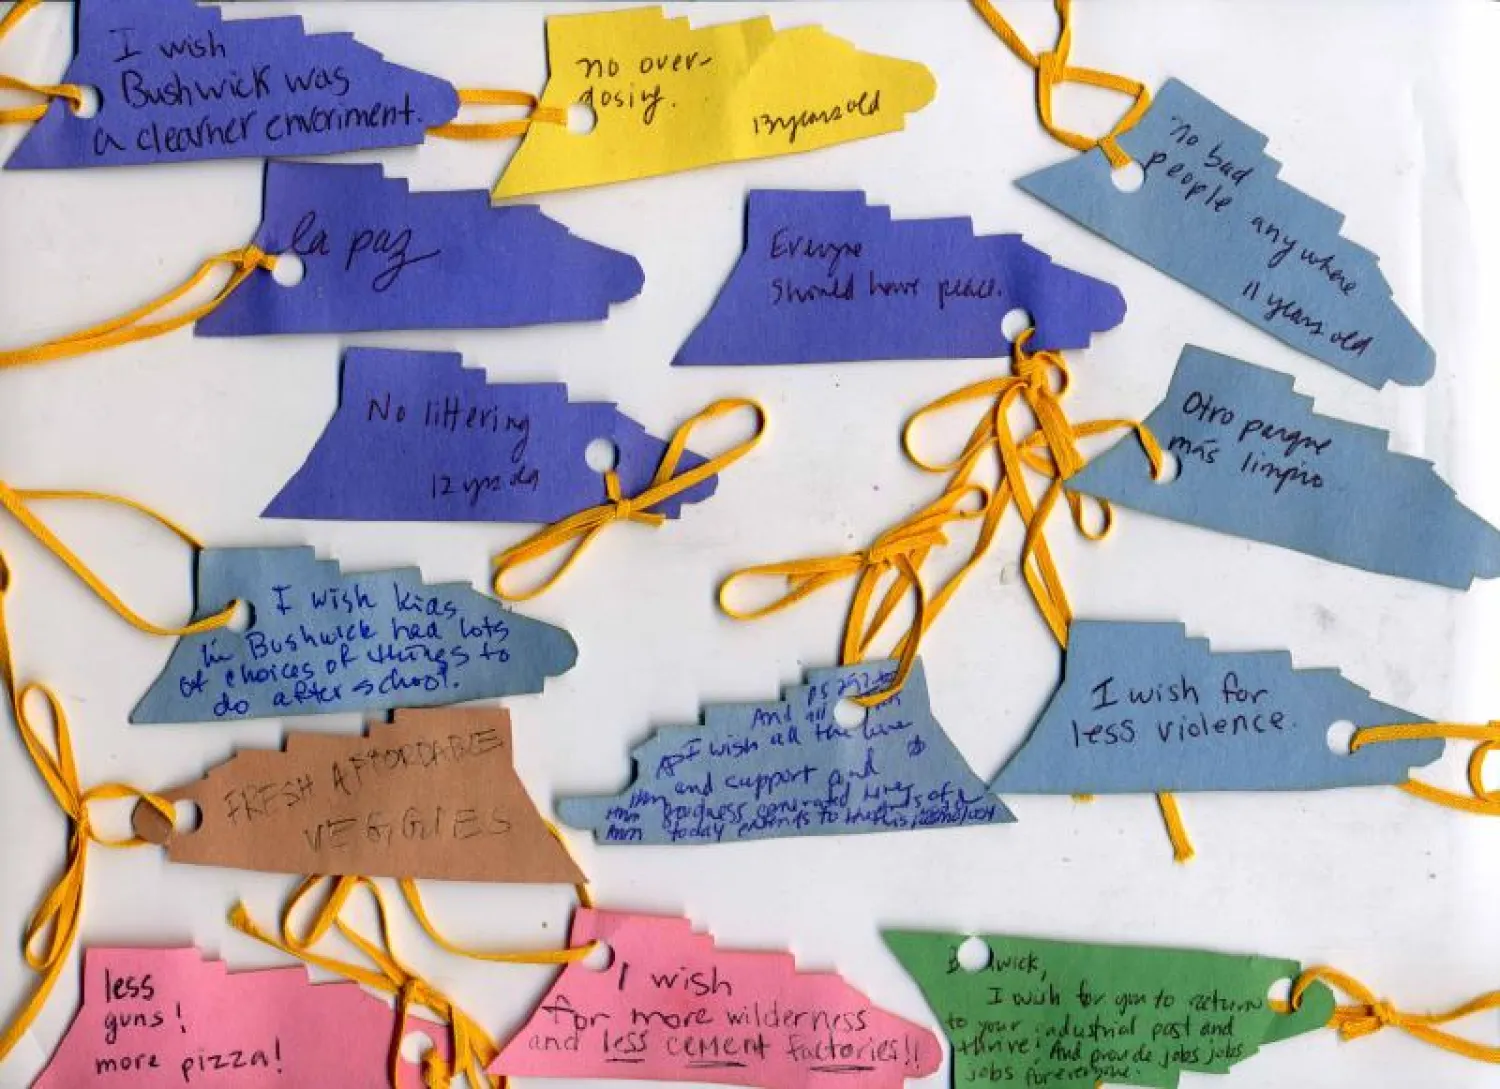 I wish
Bushwick was
a clearner envoriment.
no over-
dosing.
13 years old
no bad
people
anywhere
11 years old
la paz
Everyone
should have peace.
No littering
12 yrs old
Otro parque
más limpio
I wish kids
in Bushwick had lots
of choices of things to
do after school.
I wish for
less violence.
And
I wish all the love
and support and
goodness generated here
today extends to
FRESH AFFORDABLE
VEGGIES
less
guns!
more pizza!
I wish
for more wilderness
and less cement factories!!
wick,
I wish for you to return
to your industrial past and
thrive! And provide jobs jobs
jobs for everyone.